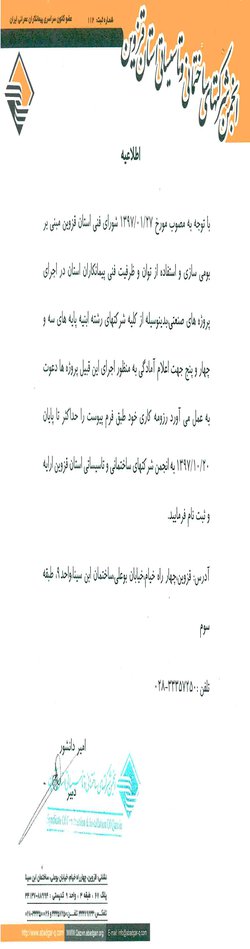 عضو کانون سراسری پیمانکاران عمرانی ایران
شماره ثبت: ۱۱۲
انجمن شرکتهای ساختمانی و تاسیساتی استان قزوین
اطلاعیه
با توجه به مصوب مورخ ۱۳۹۷/۰۱/۲۷ شورای فنی استان قزوین مبنی بر
بومی سازی و استفاده از توان و ظرفیت فنی پیمانکاران استان در اجرای
پروژه های صنعتی،بدینوسیله از کلیه شرکتهای رشته ابنیه پایه های سه و
چهار و پنج جهت اعلام آمادگی به منظور اجرای این قبیل پروژه ها دعوت
به عمل می آورد رزومه کاری خود طبق فرم پیوست را حداکثر تا پایان
۱۳۹۷/۱۰/۲۰ به انجمن شرکتهای ساختمانی و تاسیساتی استان قزوین ارایه
و ثبت نام فرمایید.
آدرس: قزوین،چهار راه خیام،خیابان بوعلی،ساختمان ابن سینا،واحد۹، طبقه
سوم
تلفن :۳۳۳۵۷۲۵۰-۰۲۸
امیر دانشور
دبیر
نشانی: قزوین، چهارراه خیام،خیابان بوعلی، ساختمان ابن سینا
http://www.abadgar-q.com
WWW.Qazvin.abadgari.org
E-mail: info@abadgar-q.com